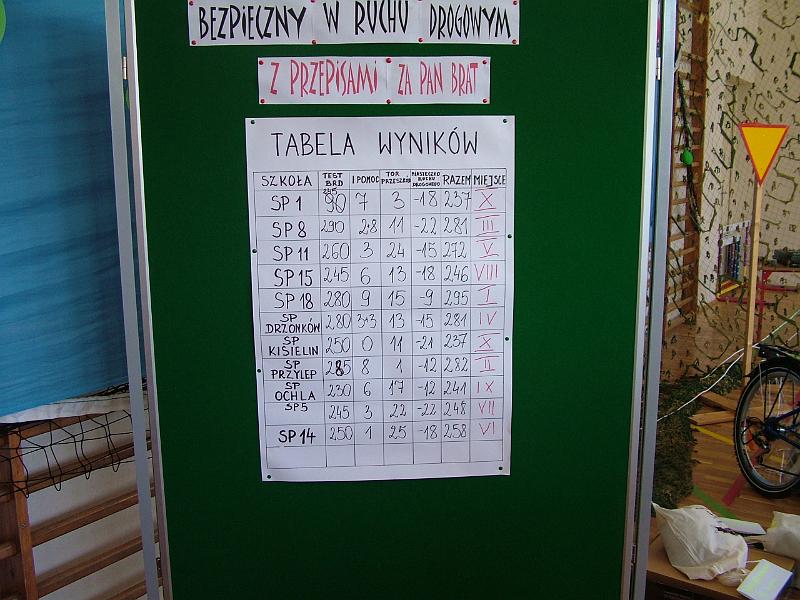 BEZPIECZNY W RUCHU DROGOWYM
Z PRZEPISAMI ZA PAN BRAT
TABELA WYNIKÓW
SZKOŁA TEST BRD I POMOC TOR PRZESZKÓD MIASTECZKO RUCHU DROGOWEGO RAZEM MIEJSCE
SP 1 245 90 7 3 -18 237 X
SP 8 290 2,8 11 -22 281 III
SP 11 260 3 24 -15 272 V
SP 15 245 6 13 -18 246 VIII
SP 18 280 9 15 -9 295 I
SP DRZONKÓW 280 3,3 13 -15 281 IV
SP KISIELIN 250 0 11 -21 237 X
SP PRZYLEP 285 8 1 -12 282 II
SP OCHLA 230 6 17 -12 241 IX
SP5 245 3 22 -22 248 VII
SP 14 250 1 25 -18 258 VI